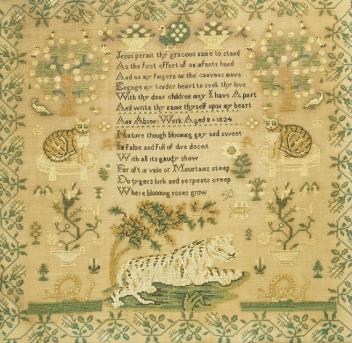 Jesus permit thy gracious name to stand
As the first effort of an infants hand
And as my fingers on the canvass move
Engage my tender heart to seek thy love
With thy dear children may I have A part
And write thy name thyself upon my heart
Ann Abner Work Aged 8 1824
Nature though blooming gay and sweet
Is false and full of dire deceit
With all its gaudy show
For oft in vale or Mountains steep
Do tygers lurk and serpents creep
Where blooming roses grow